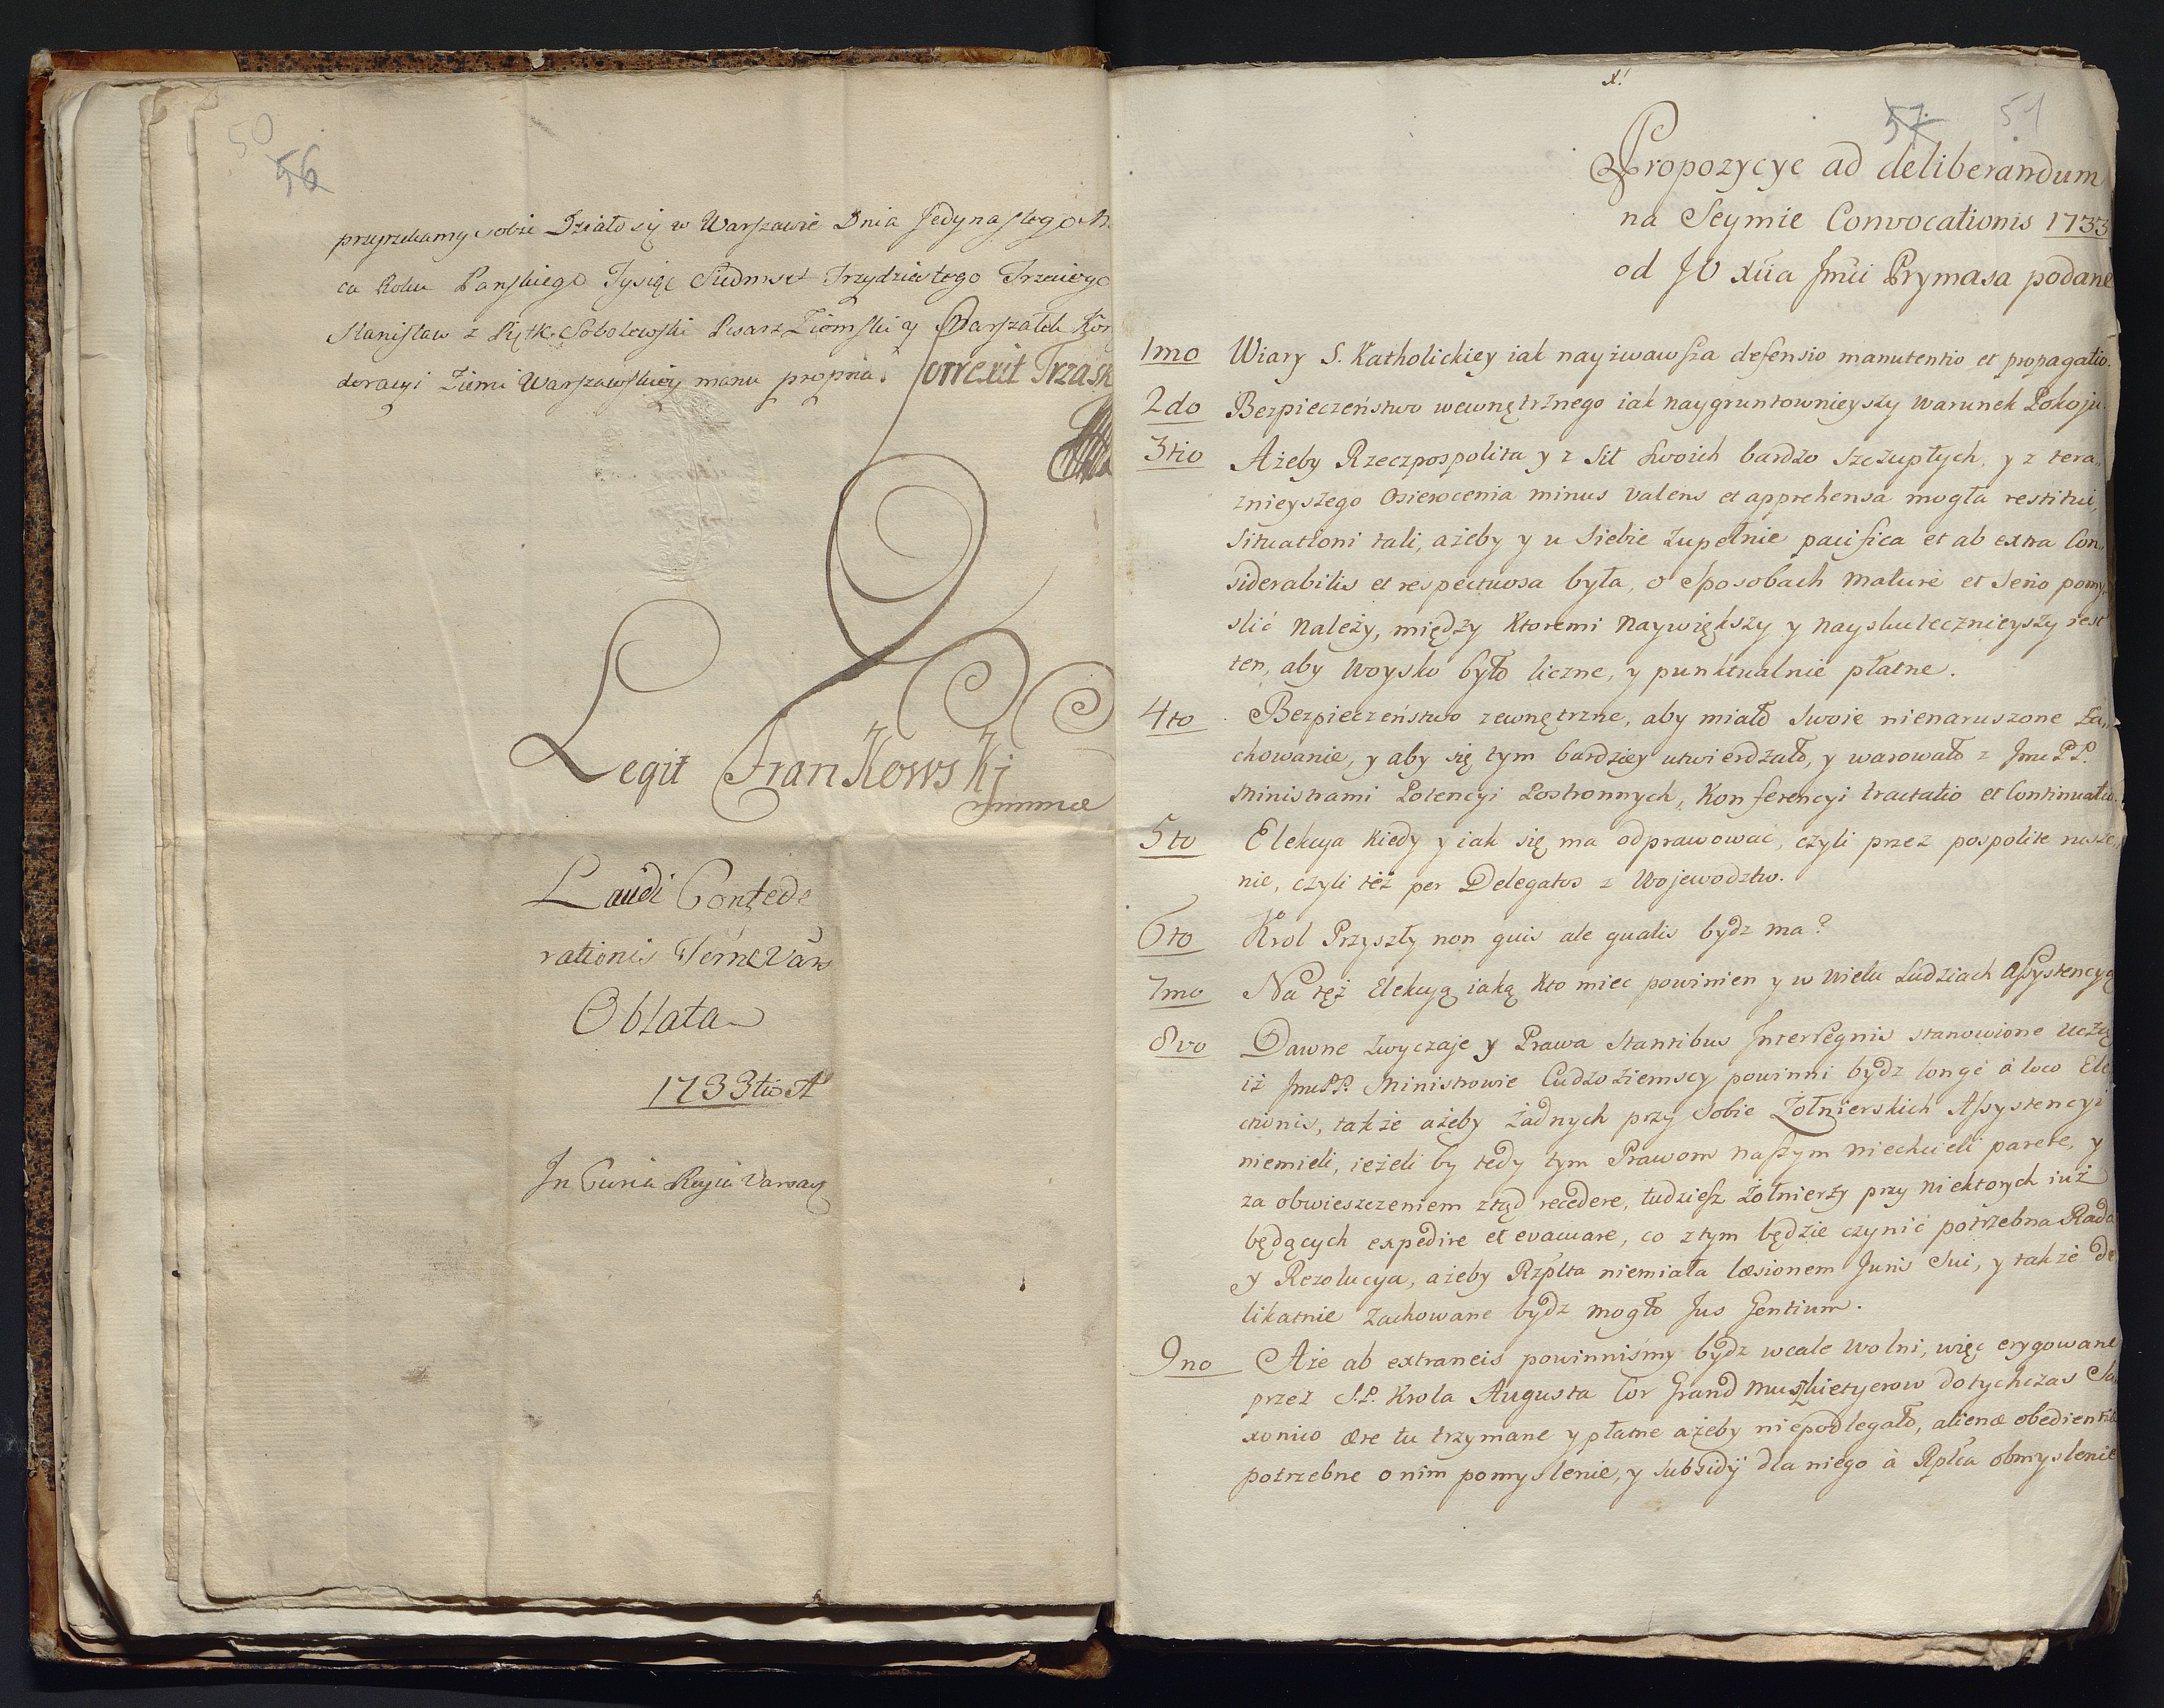 50
56
przyrzekamy sobie Działo się w Warszawie Dnia Jedynastego M
ca Roku Panskiego Tysiąc Siedmset Trzydziestego Trzeciego
Stanisław z Piątk. Sobolewski Pisarz Ziemski y Marszałek Kon
deracyi Ziemi Warszawskiey manu propria. Correxit Trzask
Legit Frankowski
Laudi Confede
rationis Terræ Vars
Oblata
1733tio A
In Curia Regia Varsav
x!
57. 51
Propozycye ad deliberandum
na Seymie Convocationis 1733
od JO Xiia Jmci Prymasa podane
1mo Wiary S. Katholickiey iak nayżwawsza defensio manutentio et propagatio.
2do Bezpieczeństwo wewnętrznego iak naygruntownieyszy warunek Pokoju.
3tio Ażeby Rzeczpospolita y z Sił Swoich bardzo Szczupłych, y z tera„
znieyszego Osierocenia minus valens et apprehensa mogła restitui,
Situationi tali, ażeby y u Siebie zupełnie pacifica et ab extra Con„
siderabilis et respectuosa była, o Sposobach maturè et Serio pomy„
slić należy, między Ktoremi naywiększy y nayskutecznieyszy iest
ten, aby Woysko było liczne, y punktualnie płatne.
4to Bezpieczeństwo zewnętrzne, aby miało Swoie nienaruszone Za„
chowanie, y aby się tym bardziey utwierdzało, y warowało z Jmc PP.
Ministrami Potencyi Postronnych, Konferencyi tractatio et Continuatio.
5to Elekcya Kiedy y iak się ma odprawować, czyli przez pospolite rusze„
nie, czyli też per Delegatos z Wojewodztw.
6to Krol Przyszły non quis ale qualis bydz ma?
7mo Na też Elekcyą iaką Kto miec powinien y w wielu Ludziach Assystencyą
8vo Dawne zwyczaje y Prawa Stantibus Interregnis stanowione uczą
iż Jmc PP. Ministrowie Cudzoziemscy powinni bydz longè à loco Ele
ctionis, także ażeby żadnych przy Sobie Żołnierskich Assystencyi
niemieli, ieżeli by tedy tym Prawom naszym niechcieli parere, y
za obwieszczeniem ztąd recedere, tudziesz Żołnierzy przy niektorych iuż
będących expedire et evacuare, co z tym będzie czynić potrzebna Rada
y Rezolucya, ażeby Rzplta niemiała læsionem Juris Sui, y także de
likatnie zachowane bydz mogło Jus Gentium.
9no Aże ab extraneis powinniśmy bydz wcale wolni, więc erygowane
przez S.P. Krola Augusta Cor Grand Muszkietyerow dotychczas Sa
xonico ære tu trzymane y płatne ażeby niepodlegało, alienæ obedientiæ
potrzebne o nim pomyslenie, y subsidij dla niego à Rplta obmyslenie